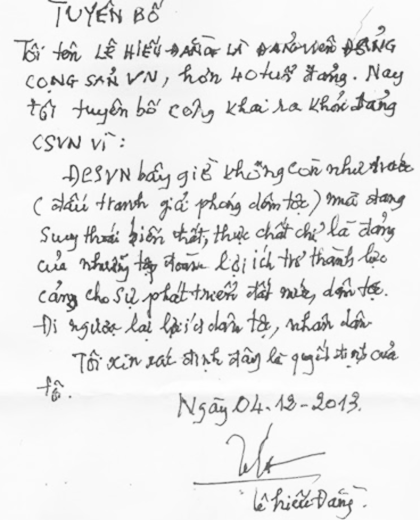 TUYÊN BỐ
Tôi tên LÊ HIẾU ĐẰNG LÀ ĐẢNG VIÊN ĐẢNG
CỘNG SẢN VN, hơn 40 tuổi đảng. Nay
tôi tuyên bố công khai ra khỏi đảng
CSVN vì:
ĐCSVN bây giờ không còn như trước
(đấu tranh giải phóng dân tộc) mà đang
suy thoái biến chất, thực chất chỉ là đảng
của những tập đoàn lợi ích trở thành lực
cảng cho sự phát triển đất nước, dân tộc.
Đi ngược lại lợi ích dân tộc, nhân dân
Tôi xin xác định đây là quyết định của
tôi.
Ngày 04-12-2013.
Lê Hiếu Đằng.